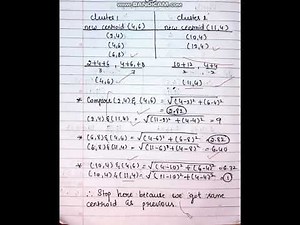 cluster 1 cluster 2
new centroid (4,6) new centroid (11,4)
(2,4) (10,4)
(4,6) (12,4)
(6,8)
2+4+6/3, 4+6+8/3 10+12/2, 4+4/2
(4,6) (11,4)
* Compare (2,4) & (4,6) = √(4-2)² + (6-4)²
= 2.82
(2,4) & (11,4) = √(11-2)² + (4-4)² = 9
* (6,8) & (4,6) = √(4-6)² + (6-8)² = 2.82
(6,8) & (11,4) = √(11-6)² + (4-8)² = 6.40
* (10,4) & (4,6) = √(4-10)² + (6-4)² = 6.32
(10,4) & (11,4) = √(11-10)² + (4-4)² = 1
∴ Stop here because we got same
centroid as previous.